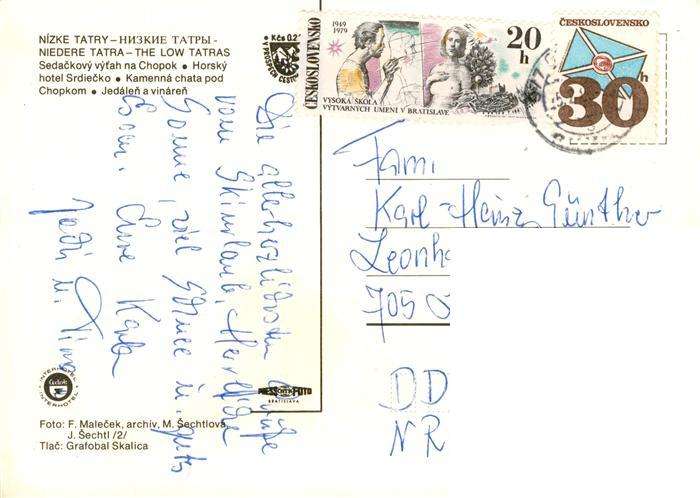 NÍZKE TATRY – НИЗКИЕ ТАТРЫ -
NIEDERE TATRA – THE LOW TATRAS
Sedačkový výťah na Chopok ● Horský
hotel Srdiečko ● Kamenná chata pod
Chopkom ● Jedáleň a vináreň
Kčs 0.2
ČESKOSLOVENSKO
1949
1979
20
h
VYSOKÁ ŠKOLA
VÝTVARNÝCH UMENÍ V BRATISLAVE
ČESKOSLOVENSKO
30
h
Die allerherzlichsten Grüße
vom Skiurlaub. Herrliche
Sonne, viel Schnee u. gutes
Essen. Eure Karla
u. Timo
Fam.
Karl-Heinz Günther
Leonh
705
DD
NR
INTERHOTEL
INTERHOTEL
PRESSFOTO
BRATISLAVA
Foto: F. Maleček, archív, M. Šechtlová,
J. Šechtl /2/
Tlač: Grafobal Skalica